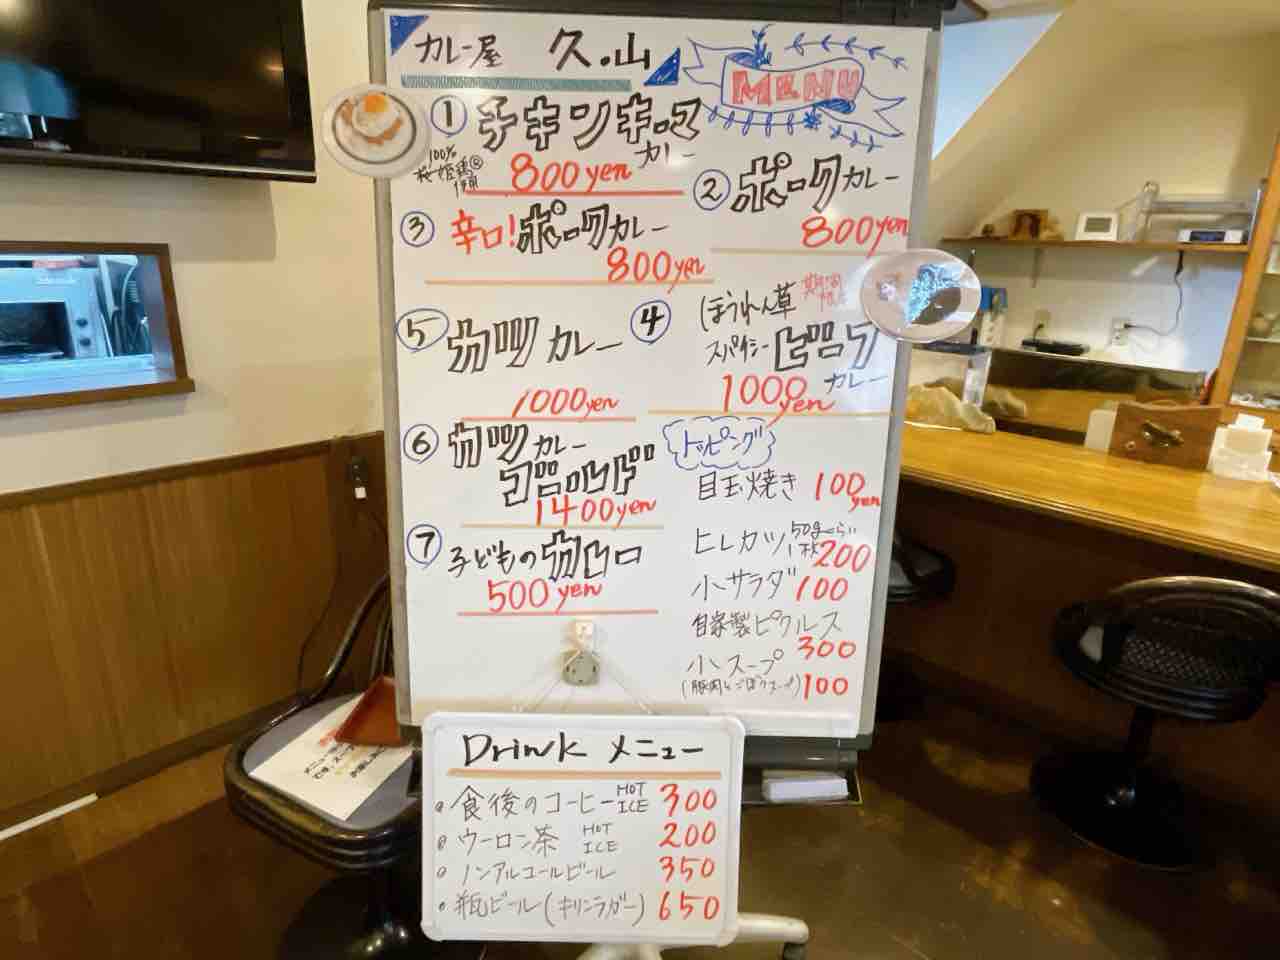 カレー屋 久.山
MENU
① チキンキーマ
カレー
100%
桜姫鶏®
使用
800yen
② ポークカレー
800yen
③ 辛口!ポークカレー
800yen
④ ほうれん草 期間限定
スパイシー ビーフ
カレー
1000yen
⑤ カツカレー
1000yen
⑥ カツカレー
ゴールド
1400yen
⑦ 子どものカレー
500yen
トッピング
目玉焼き 100yen
ヒレカツ 50gくらい 1枚 200
小サラダ 100
自家製ピクルス
300
小スープ
(豚肉とごぼうスープ) 100
Drink メニュー
食後のコーヒー HOT ICE 300
ウーロン茶 HOT ICE 200
ノンアルコールビール 350
瓶ビール(キリンラガー) 650